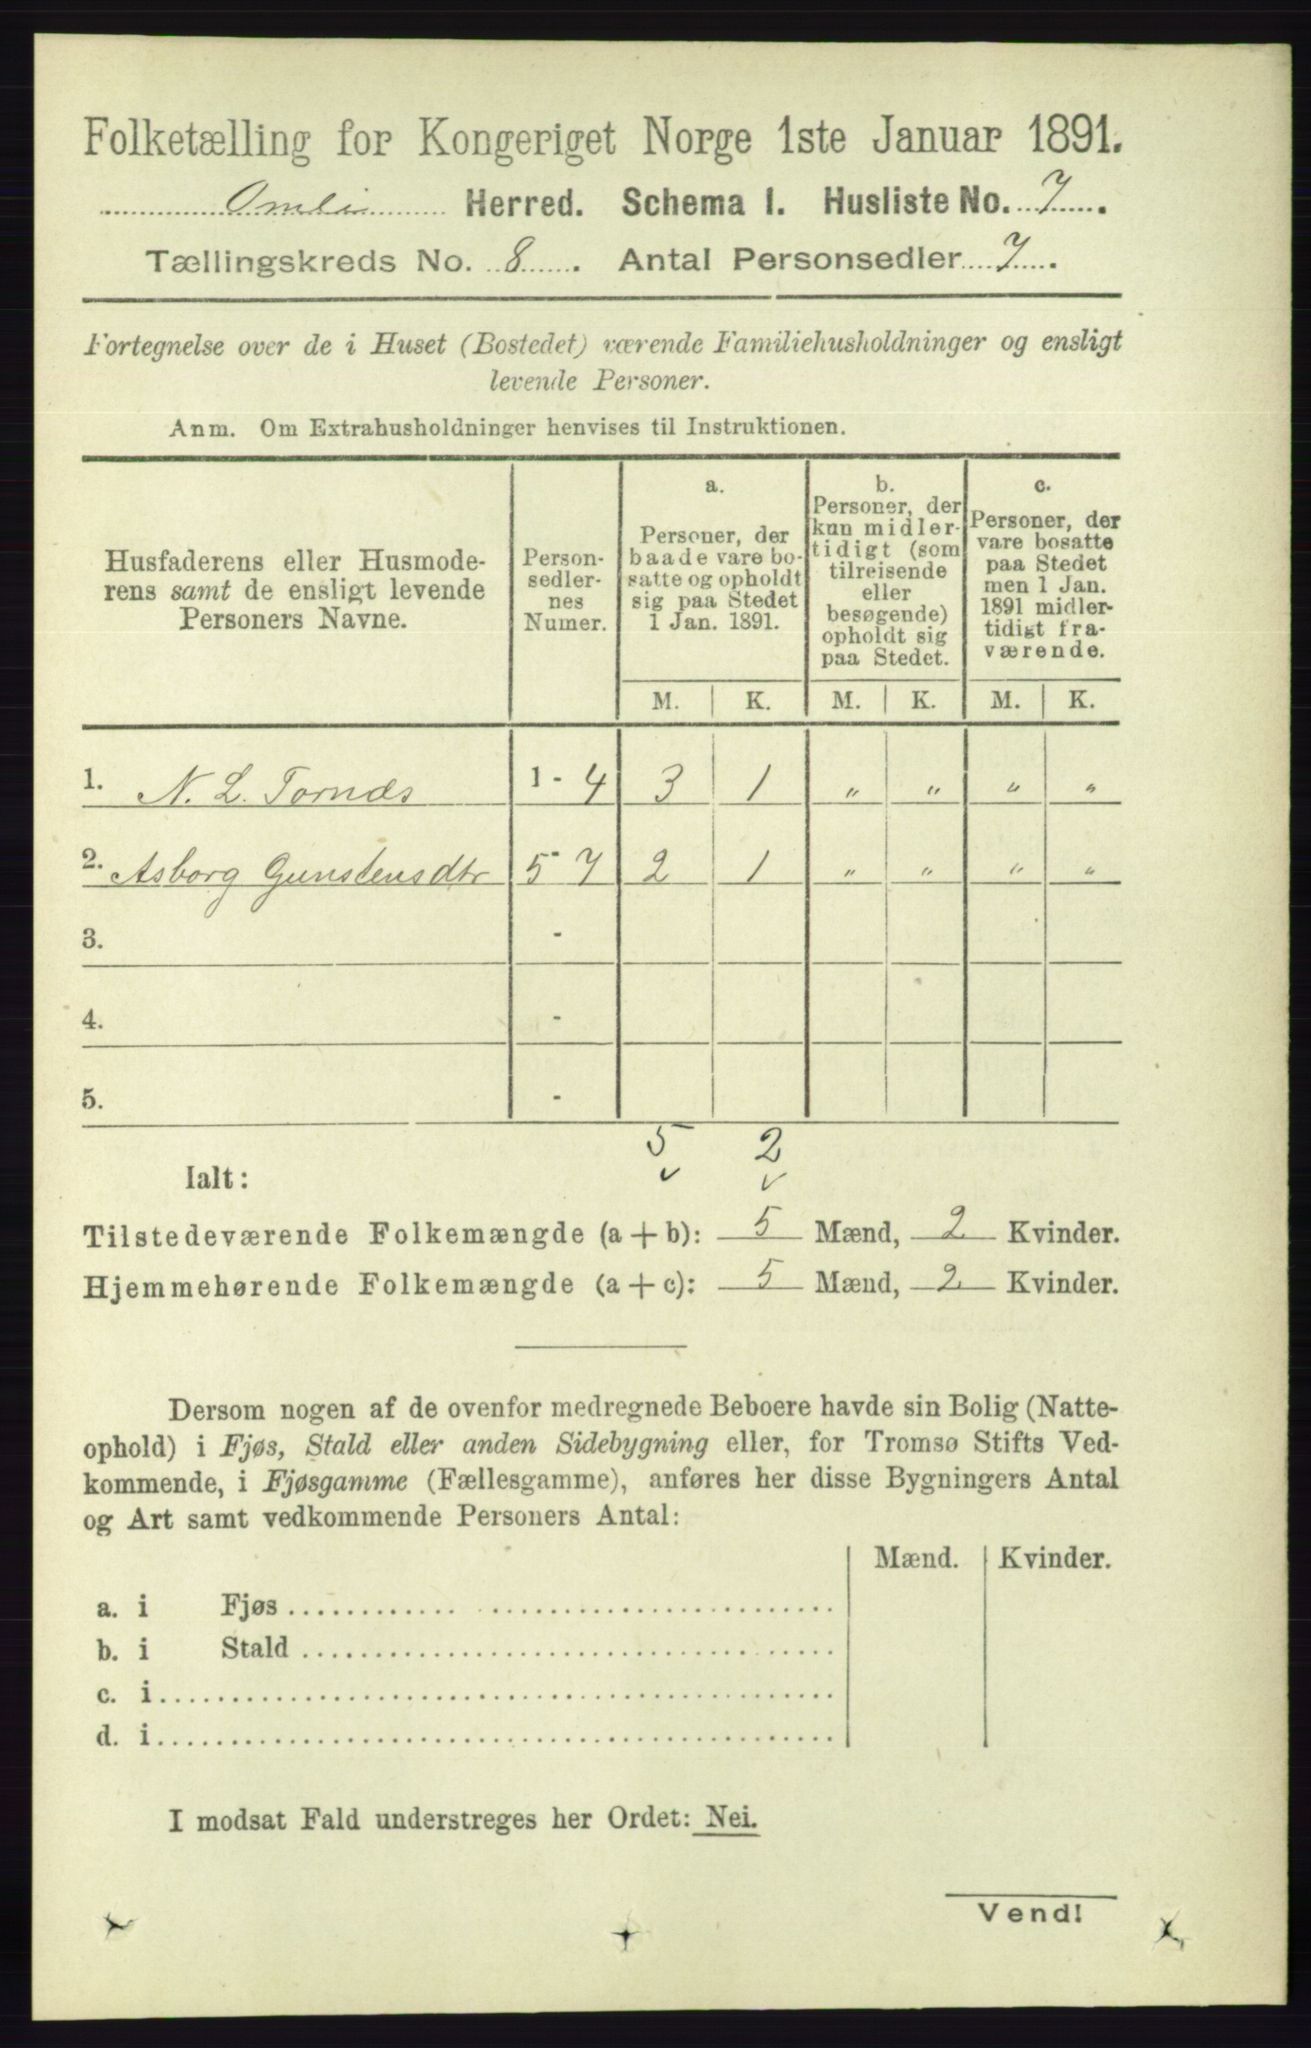 Folketælling for Kongeriget Norge 1ste Januar 1891.
Omli Herred. Schema I. Husliste No. 7.
Tællingskreds No. 8. Antal Personsedler 7.
Fortegnelse over de i Huset (Bostedet) værende Familiehusholdninger og ensligt
levende Personer.
Anm. Om Extrahusholdninger henvises til Instruktionen.
Husfaderens eller Husmode-
rens samt de ensligt levende
Personers Navne.
Person-
sedler-
nes
Numer.
a.
Personer, der
baade vare bo-
satte og opholdt
sig paa Stedet
1 Jan. 1891.
b.
Personer, der
kun midler-
tidigt (som
tilreisende
eller
besøgende)
opholdt sig
paa Stedet.
c.
Personer, der
vare bosatte
paa Stedet
men 1 Jan.
1891 midler-
tidigt fra-
værende.
M. K. M. K. M. K.
1. N. L. 1 - 4 3 1 " " " "
2. Asborg Gunstensdtr 5 - 7 2 1 " " " "
3. -
4. -
5. -
5 2
Ialt:
Tilstedeværende Folkemængde (a + b): 5 Mænd, 2 Kvinder.
Hjemmehørende Folkemængde (a + c): 5 Mænd, 2 Kvinder.
Dersom nogen af de ovenfor medregnede Beboere havde sin Bolig (Natte-
ophold) i Fjøs, Stald eller anden Sidebygning eller, for Tromsø Stifts Ved-
kommende, i Fjøsgamme (Fællesgamme), anføres her disse Bygningers Antal
og Art samt vedkommende Personers Antal:
Mænd. Kvinder.
a. i Fjøs
b. i Stald
c. i
d. i
I modsat Fald understreges her Ordet: Nei.
Vend!